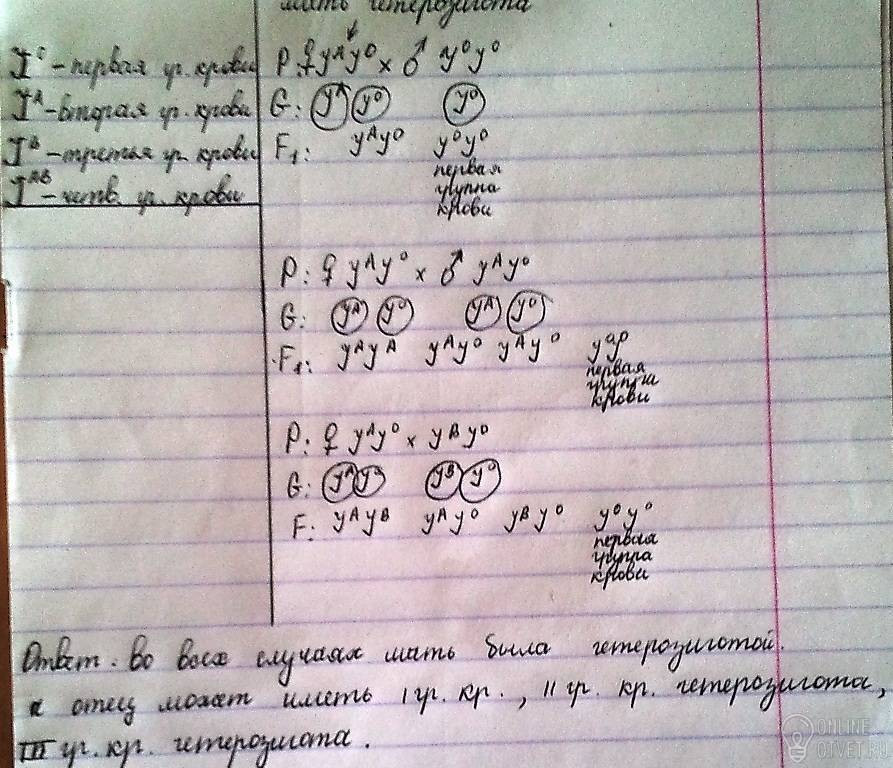 мать гетерозигота
J⁰ - первая гр. крови
Jᴬ - вторая гр. крови
Jᴮ - третья гр. крови
Jᴬᴮ - четв. гр. крови
P: ♀ yᴬy⁰ × ♂ y⁰y⁰
G: yᴬ y⁰ y⁰
F₁: yᴬy⁰ y⁰y⁰
первая
группа
крови
P: ♀ yᴬy⁰ × ♂ yᴬy⁰
G: yᴬ y⁰ yᴬ y⁰
F₁: yᴬyᴬ yᴬy⁰ yᴬy⁰ y⁰y⁰
первая
группа
крови
P: ♀ yᴬy⁰ × yᴮy⁰
G: yᴬ y⁰ yᴮ y⁰
F: yᴬyᴮ yᴬy⁰ yᴮy⁰ y⁰y⁰
первая
группа
крови
Ответ: во всех случаях мать была гетерозиготой.
а отец может иметь I гр. кр., II гр. кр. гетерозигота,
III гр. кр. гетерозигота.
ONLINE
OTVET.RU